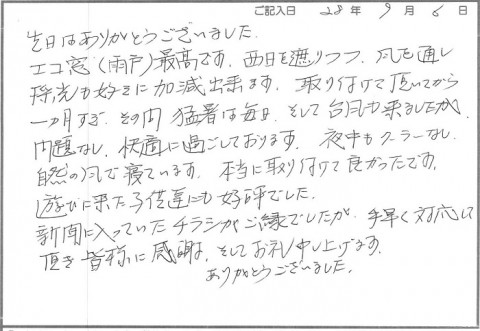 ご記入日 28年 9月 6日
先日はありがとうございました。
エコ窓(雨戸)最高です。西日を遮りつつ、風を通し
採光も好きに加減出来ます。取り付けて頂いてから
一カ月すぎ、その間 猛暑は毎日、そして台風も来ましたが、
問題なし、快適に過ごしております。夜中もクーラーなし、
自然の風で寝ています。本当に取り付けて良かったです。
遊びに来た子供達にも好評でした。
新聞に入っていたチラシがご縁でしたが、手早く対応して
頂き皆様に感謝、そしてお礼申し上げます。
ありがとうございました。